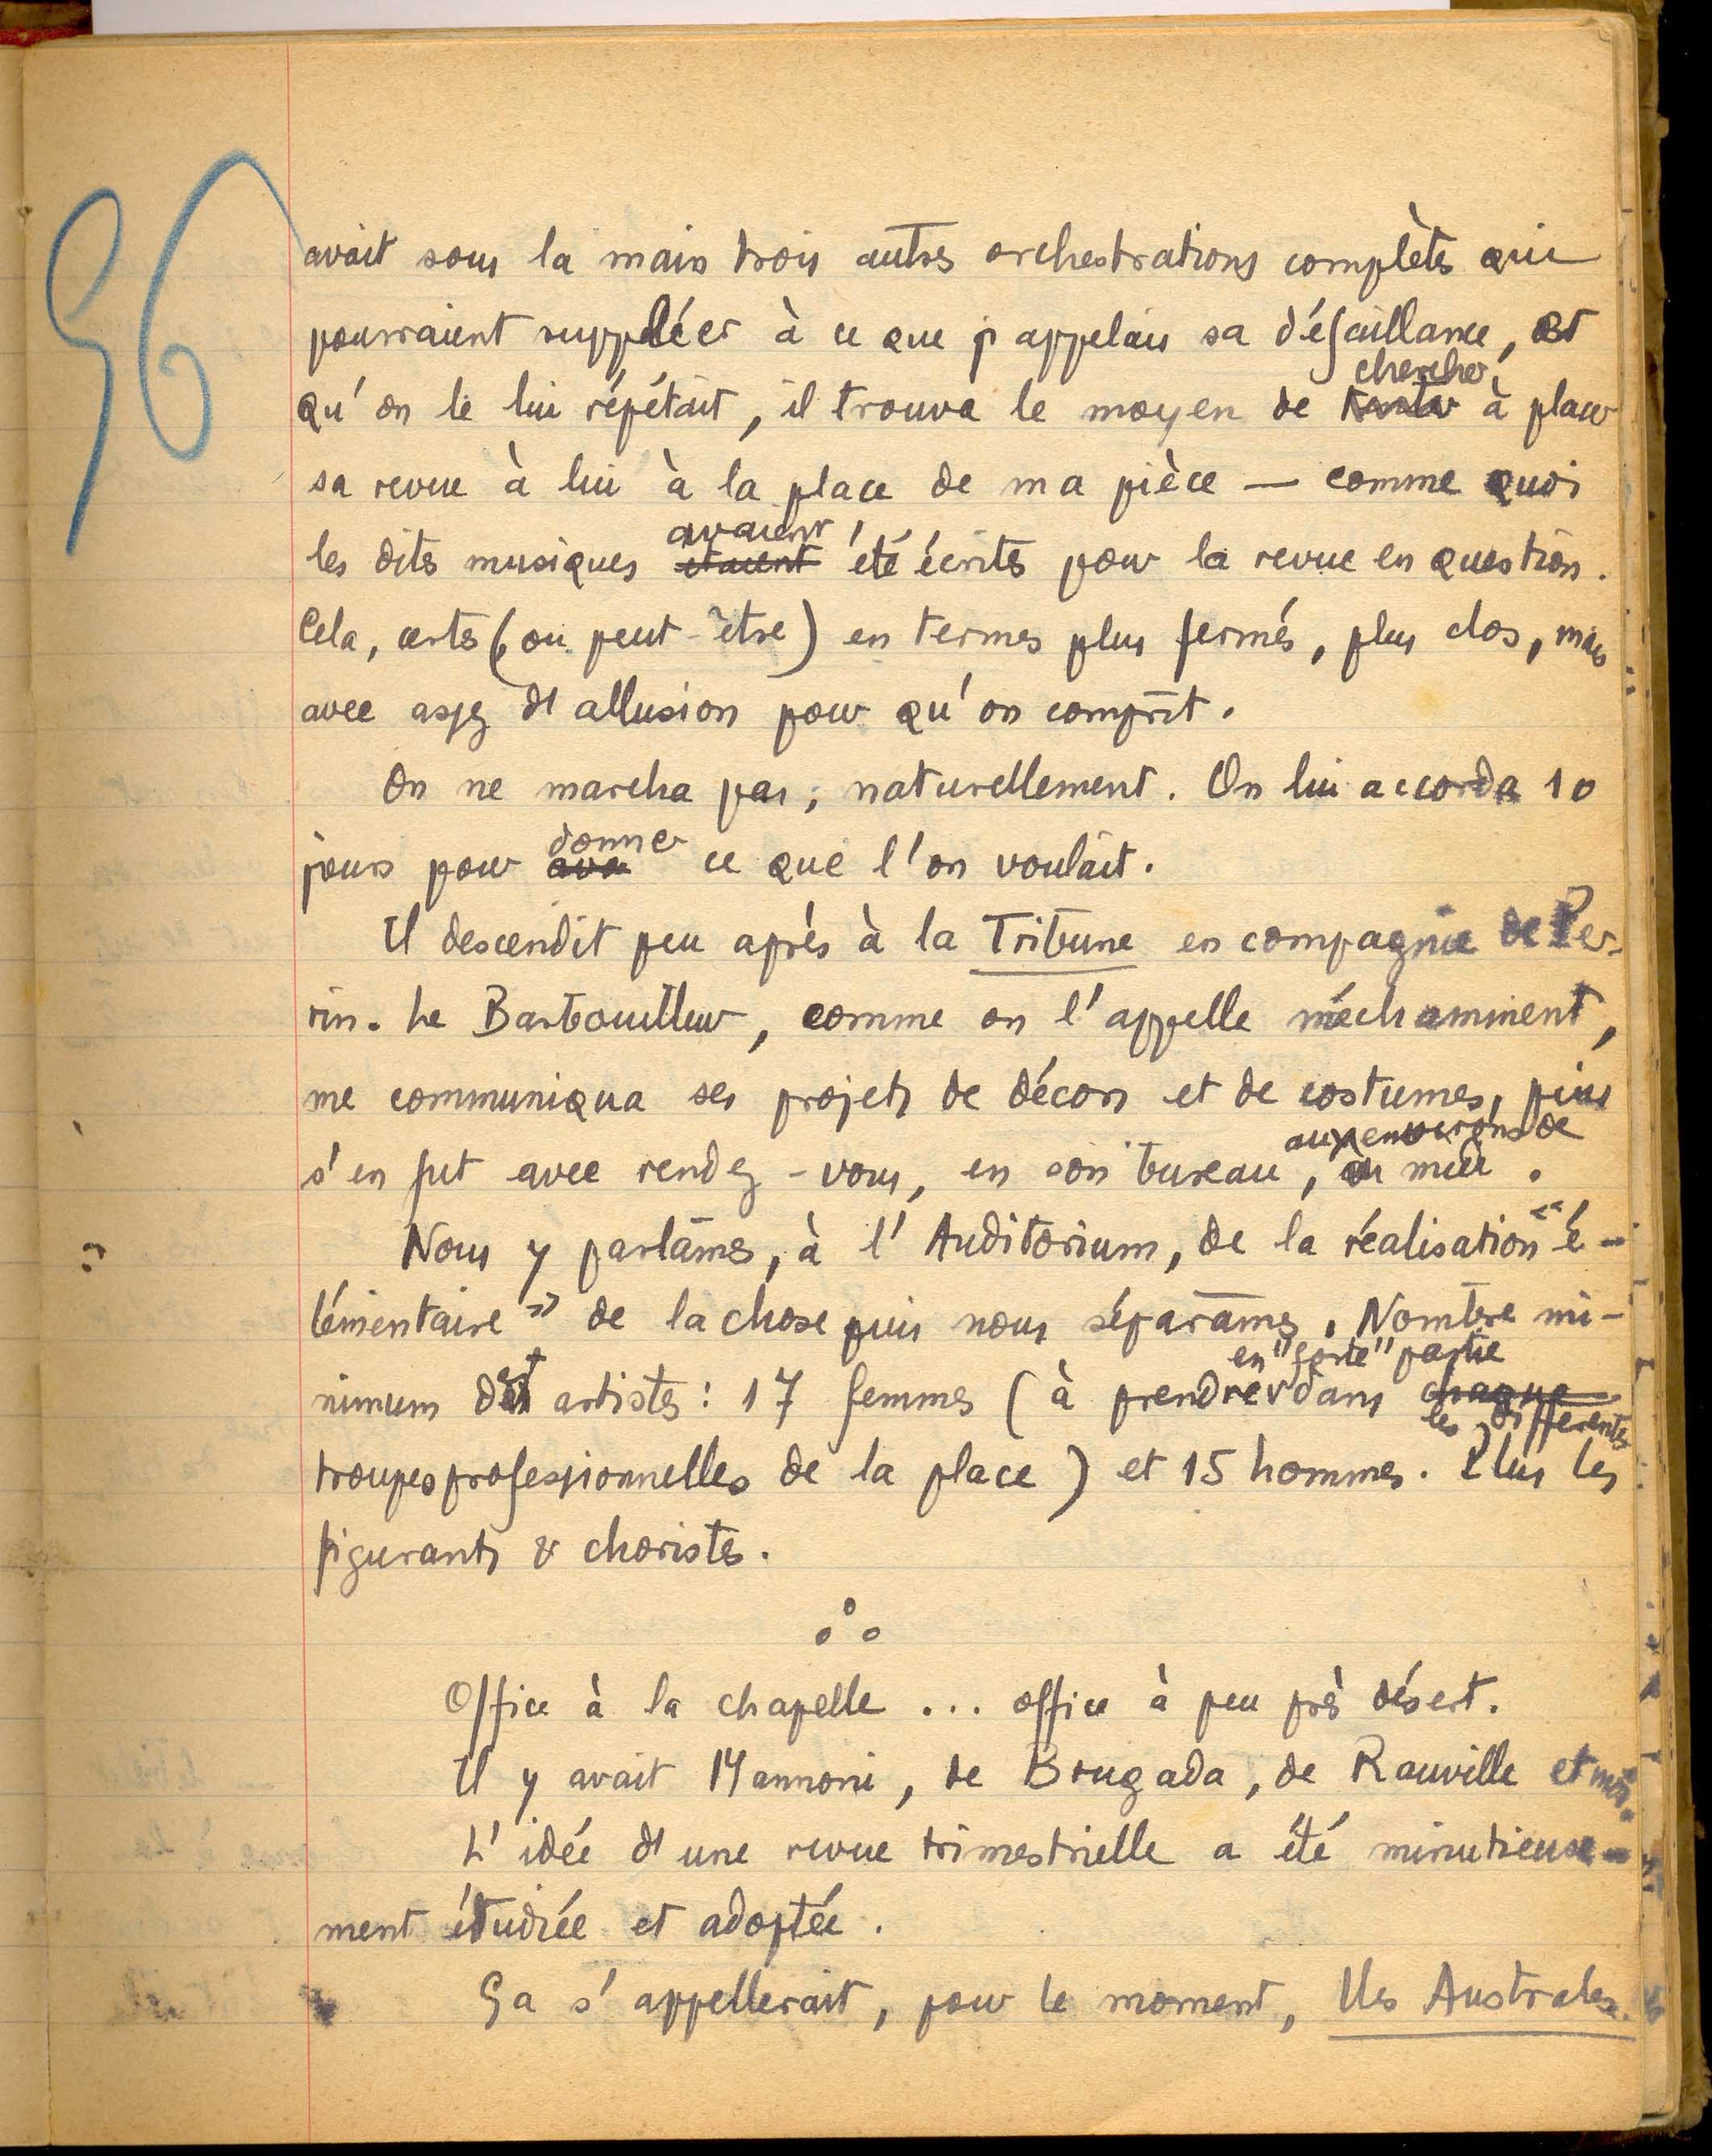 96
avait sous la main trois autres orchestrations complètes qui
pourraient suppléer à ce que j'appelais sa défaillance, et
chercher
qu'on le lui répétait, il trouva le moyen de à placer
sa revue à lui à la place de ma pièce — comme quoi
avaient
les dites musiques étaient été écrites pour la revue en question.
Cela, certes (ou peut-être) en termes plus fermés, plus clos, mais
avec assez d'allusion pour qu'on comprît.
On ne marcha pas, naturellement. On lui accorda 10
donner
jours pour ava ce que l'on voulait.
Il descendit peu après à la Tribune en compagnie de Per-
rin. Le Barbouilleur, comme on l'appelle méchamment,
me communiqua ses projets de décors et de costumes, puis
aux environs de
s'en fut avec rendez-vous, en son bureau, midi.
Nous y parlâmes, à l'Auditorium, de la réalisation "é-
lémentaire" de la chose puis nous séparâmes. Nombre mi-
en "forte" partie
nimum artistes : 17 femmes (à prendre dans chaque
les différentes
troupes professionnelles de la place) et 15 hommes. Plus les
figurants & choristes.
Office à la chapelle ... office à peu près désert.
Il y avait Mannoni, de Brugada, de Rauville et moi.
L'idée d'une revue trimestrielle a été minutieuse-
ment étudiée et adoptée.
Ça s'appellerait, pour le moment, Iles Australes.